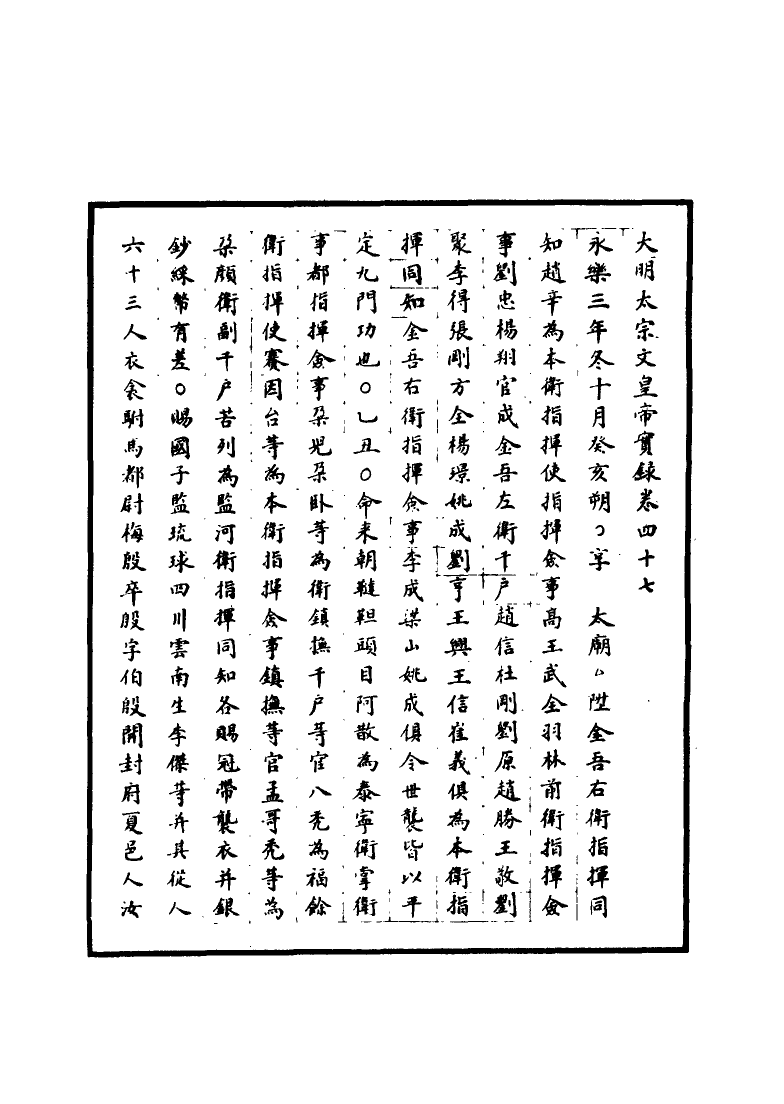 大明太宗文皇帝實錄卷四十七
永樂三年冬十月癸亥朔〇享　太廟〇陞金吾右衛指揮同
知趙辛為本衛指揮使指揮僉事高王武全羽林前衛指揮僉
事劉忠楊翔官成金吾左衛千户趙信杜剛劉原趙勝王敬劉
聚李得張剛方全楊璟姚成劉亨王興王信崔義俱為本衛指
揮同知金吾右衛指揮僉事李成梁山姚成俱令世襲皆以平
定九門功也〇乙丑〇命来朝韃靼頭目阿散為泰寧衛掌衛
事都指揮僉事朶兒朶卧等為衛鎮撫千户等官八禿為福餘
衛指揮使賽因台等為本衛指揮僉事鎮撫等官孟哥禿等為
朶顔衛副千户苦列為監河衛指揮同知各賜冠帶襲衣并銀
鈔綵幣有差〇賜國子監琉球四川雲南生李傑等并其從人
六十三人衣衾駙馬都尉梅殷卒殷字伯殷開封府夏邑人汝